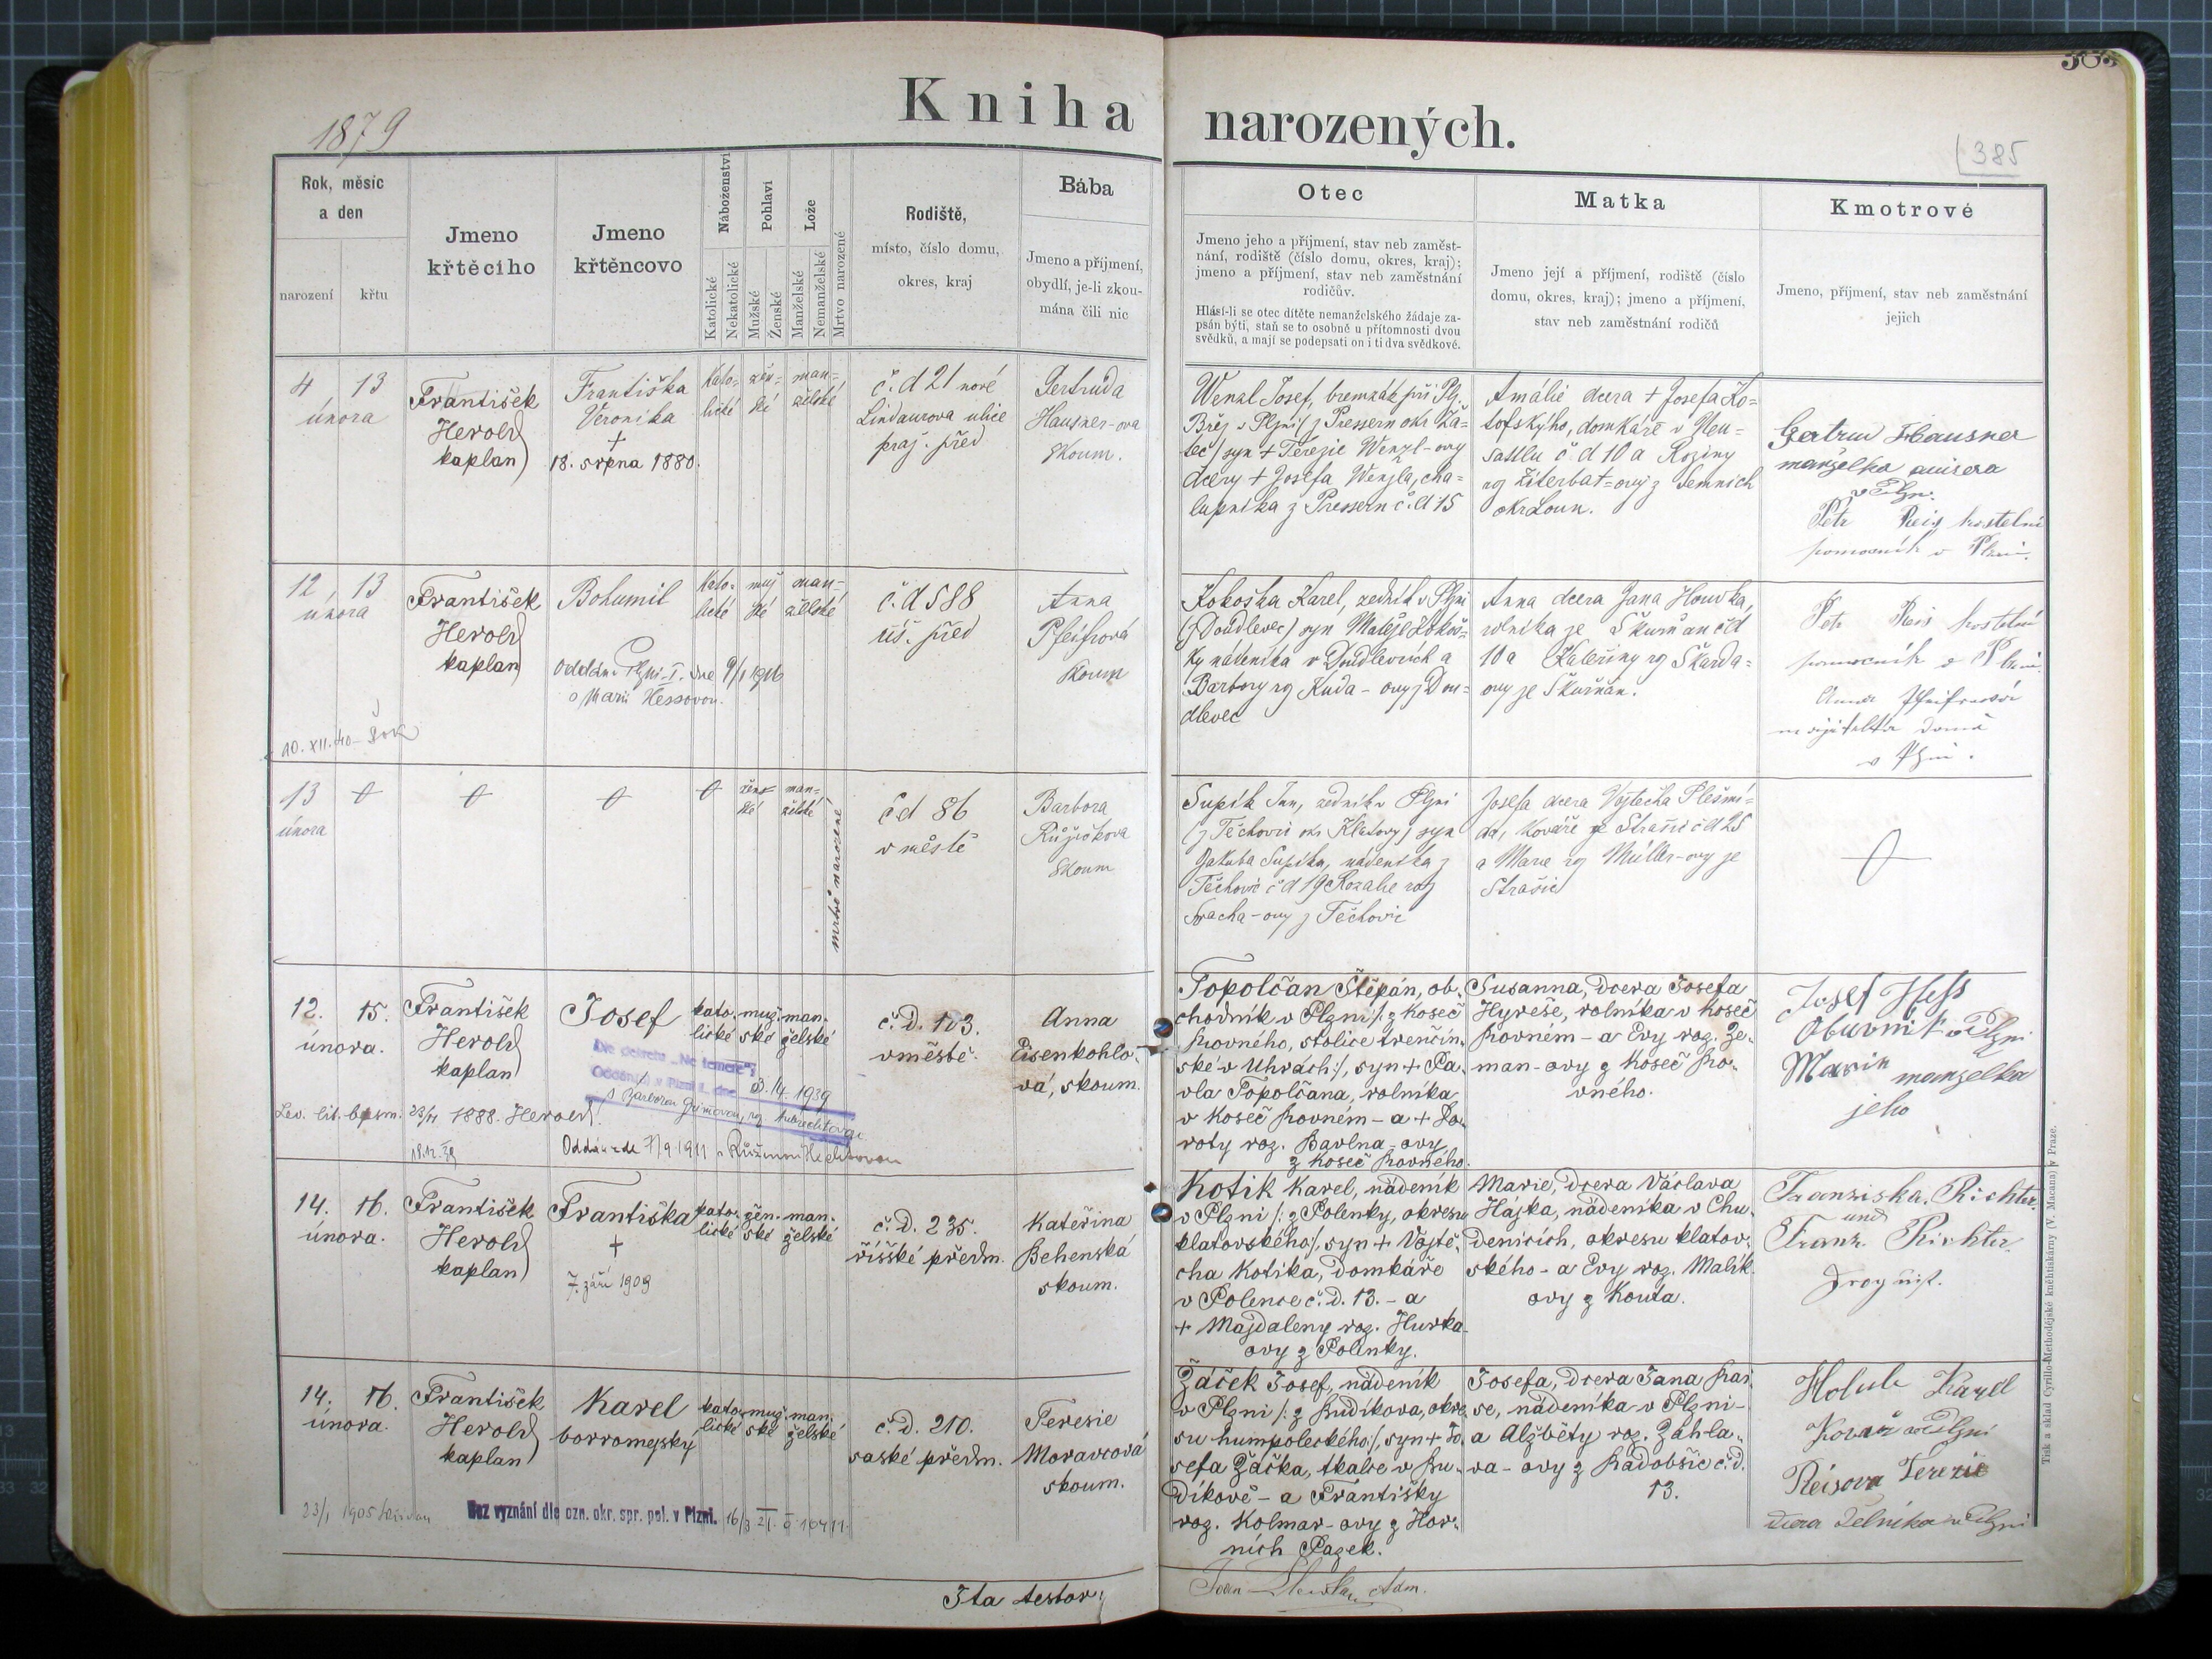 Kniha narozených.
1879
385
Rok, měsíc
a den
narození
křtu
Jmeno
křtěcího
Jmeno
křtěncovo
Náboženství
Katolické
Nekatolické
Pohlaví
Mužské
Ženské
Lože
Manželské
Nemanželské
Mrtvo narozené
Rodiště,
místo, číslo domu,
okres, kraj
Bába
Jmeno a příjmení,
obydlí, je-li zkou-
mána čili nic
Otec
Jmeno jeho a příjmení, stav neb zaměst-
nání, rodiště (číslo domu, okres, kraj);
jmeno a příjmení, stav neb zaměstnání
rodičův.
Hlásí-li se otec dítěte nemanželského žádaje za-
psán býti, staň se to osobně u přítomnosti dvou
svědků, a mají se podepsati on i ti dva svědkové.
Matka
Jmeno její a příjmení, rodiště (číslo
domu, okres, kraj); jmeno a příjmení,
stav neb zaměstnání rodičů
Kmotrové
Jmeno, příjmení, stav neb zaměstnání
jejich
4 13
února
František
Herold
kaplan
Františka
Veronika
+
18. srpna 1880.
Kato=
lické
žen=
ské
man=
želské
č. d 21 nové
Lindaurova ulice
praž. před
Gertruda
Hausner-ova
skoum.
Wenzl Josef, bremzák při Plz.
Břez v Plzni / z Pressern okr Ža=
teč / syn + Terezie Wenzl-ovy
dcery + Josefa Wenzla, cha=
lupníka z Pressern č. d 15
Amálie dcera + Josefa Ko=
tofského, domkáře v Neu=
sattlu č. d 10 a Roziny
rz Žiterbat=ovy z Semnich
okr Loun.
Gertrud Hausner
manželka
v Plzni.
Petr Reis kostelní
pomocník v Plzni.
12 13
února
František
Herold
kaplan
Bohumil
Oddán v Plzni-I. dne 9/1 1916
s Marií Hessovou.
10. XII. 40
Kato=
lické
muž
ské
man=
želské
č. d 588
říš. před
Anna
Pfeifrová
skoum
Kokoška Karel, zedník v Plzni
(z Doudlevec) syn Matěje Kokoš=
ky nádeníka v Doudlevcích a
Barbory rz Kuda-ovy z Dou=
dlevec
Anna dcera Jana Houška,
rolníka ze Škurňan čd
10 a Kateřiny rz Škarda=
ovy ze Škurňan.
Petr Reis kostelní
pomocník v Plzni.
Anna Pfeifrová
majitelka domu
v Plzni.
13
února
žen=
ské
man=
želské
mrtvě narozené
čd 86
v městě
Barbora
Růžičkova
skoum
Supík Jan, zedník v Plzni
(z Těchovic okr Klatovy) syn
Jakuba Supíka, nádeníka z
Těchovic č d 19 Rozalie roz
Svacha-ovy z Těchovic
Josefa dcera Vojtěcha Plešmí=
da, kováře ze Strašic č d 25
a Marie rz Müller-ovy ze
Strašic
12. 15.
února.
František
Herold
kaplan
Josef
Dle dekretu „Ne temere“:
Oddán(a) v Plzni I. dne 3. /4. 1939
s Barborou
Lev. lit. bapsm. 23/4 1888. Herold.
18.12.39
Oddán zde 7/9. 1911 s Růženou Hechtovou
kato-
lické
muž.
ské
man.
želské
č. d. 103.
v městě.
Anna
Eisenkohlo-
vá, skoum.
Topolčan Štěpán, ob-
chodník v Plzni /: z Koseč
Rovného, stolice trenčín-
ské v Uhrách :/, syn + Pa-
vla Topolčana, rolníka
v Koseč Rovném - a + Do-
roty roz. Bavlna-ovy
z Koseč Rovného.
Susanna, dcera Josefa
Hyreše, rolníka v Koseč
Rovném - a Evy roz. Ze-
man-ovy z Koseč Ro-
vného.
Josef Hess
Obuvník v Plzni
Marie manželka
jeho
14. 16.
února.
František
Herold
kaplan
Františka
+
7. září 1909
kato-
lické
žen-
ské
man-
želské
č. d. 235.
říšské předm.
Kateřina
Behenská
skoum.
Kotík Karel, nádeník
v Plzni /: z Polenky, okresu
klatovského :/, syn + Vojtě-
cha Kotíka, domkáře
v Polence č. d. 13. - a
+ Majdaleny roz. Hurka-
ovy z Polenky.
Marie, dcera Václava
Hájka, nádeníka v Chu-
denicích, okresu klatov-
ského - a Evy roz. Malík-
ovy z Kouta.
Franziska Richter
und
Franz Richter
Drogist.
14. 16.
února.
František
Herold
kaplan
Karel
borromejský
23/1 1905
Bez vyznání dle ozn. okr. spr. pol. v Plzni. 16/3 21.
kato-
lické
muž.
ské
man-
želské
č. d. 210.
saské předm.
Terezie
Moravcová
skoum.
Žáček Josef, nádeník
v Plzni /: z Budíkova, okre-
su humpoleckého :/, syn + Jo-
sefa Žáčka, tkalce v Bu-
díkově - a Františky
roz. Kolmar-ovy z Hor-
ních Pazek.
Josefa, dcera Jana Kar-
se, nádeníka v Plzni -
a Alžběty roz. Záhla-
va-ovy z Radobšic č. d.
13.
Holub Karel
Kovář v Plzni
Reisova Terezie
dcera dělníka v Plzni
Ita testor:
Adm.
Tisk a sklad Cyrillo-Methodějské knihtiskárny (V. Macana) v Praze.